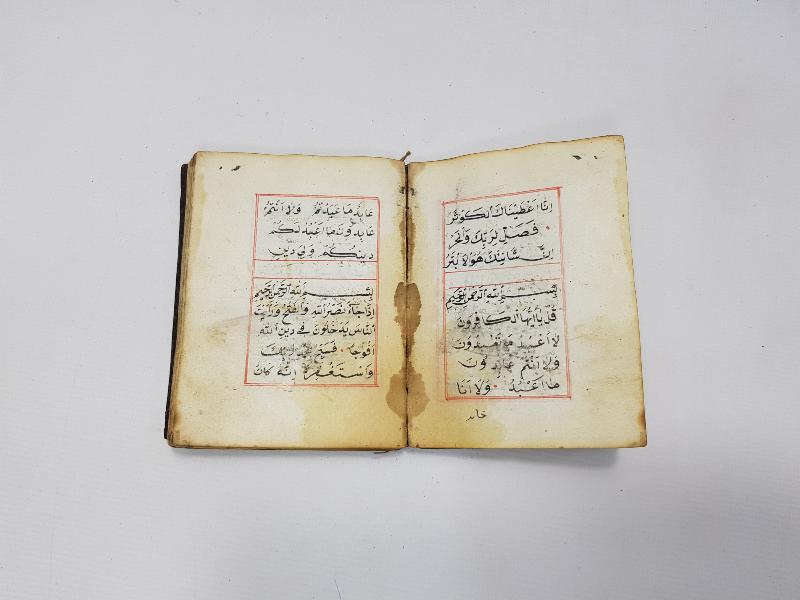 اِنَّا اَعْطَيْنَاكَ الْكَوْثَرَ
فَصَلِّ لِرَبِّكَ وَانْحَرْ
اِنَّ شَانِئَكَ هُوَ الْاَبْتَرُ
بِسْمِ اللّٰهِ الرَّحْمٰنِ الرَّحِيْمِ
قُلْ يَا اَيُّهَا الْكَافِرُونَ
لَا اَعْبُدُ مَا تَعْبُدُونَ
وَلَا اَنْتُمْ عَابِدُونَ
مَا اَعْبُدُ وَلَا اَنَا
عابد
عَابِدٌ مَا عَبَدْتُمْ وَلَا اَنْتُمْ
عَابِدُونَ مَا اَعْبُدُ لَكُمْ
دِينُكُمْ وَلِيَ دِينِ
بِسْمِ اللّٰهِ الرَّحْمٰنِ الرَّحِيْمِ
اِذَا جَاءَ نَصْرُ اللّٰهِ وَالْفَتْحُ وَرَاَيْتَ
النَّاسَ يَدْخُلُونَ فِي دِينِ اللّٰهِ
اَفْوَاجًا فَسَبِّحْ بِحَمْدِ رَبِّكَ
وَاسْتَغْفِرْهُ اِنَّهُ كَانَ